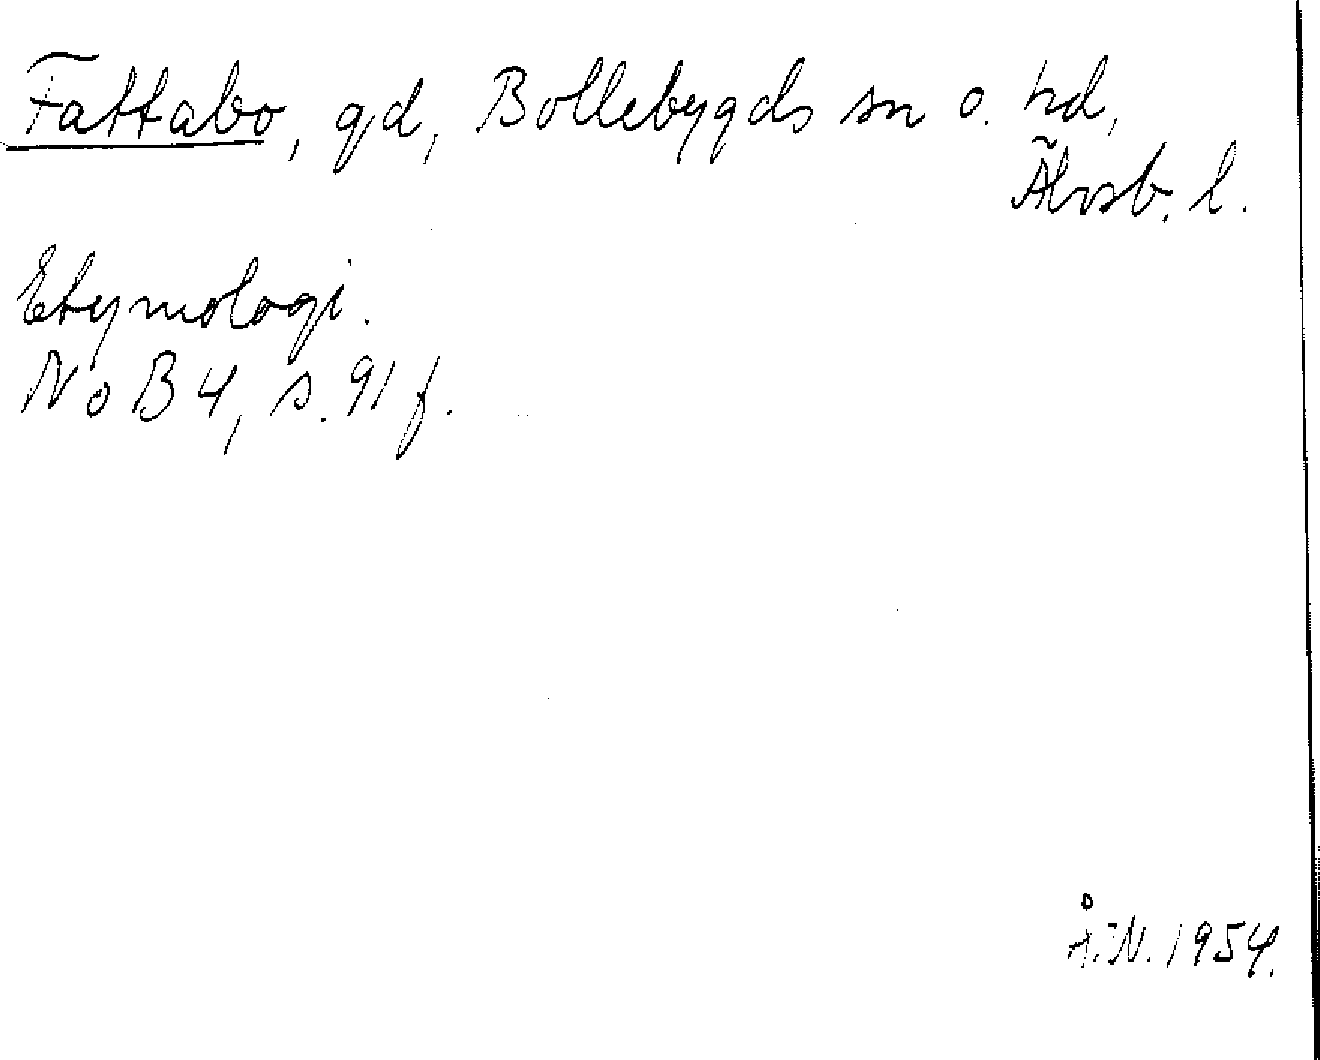 Fattabo, gd, Bollebygds sn o. hd,
Älvsb. l.
Etymologi.
NoB 4, s. 91 f.
Å.N. 1954.